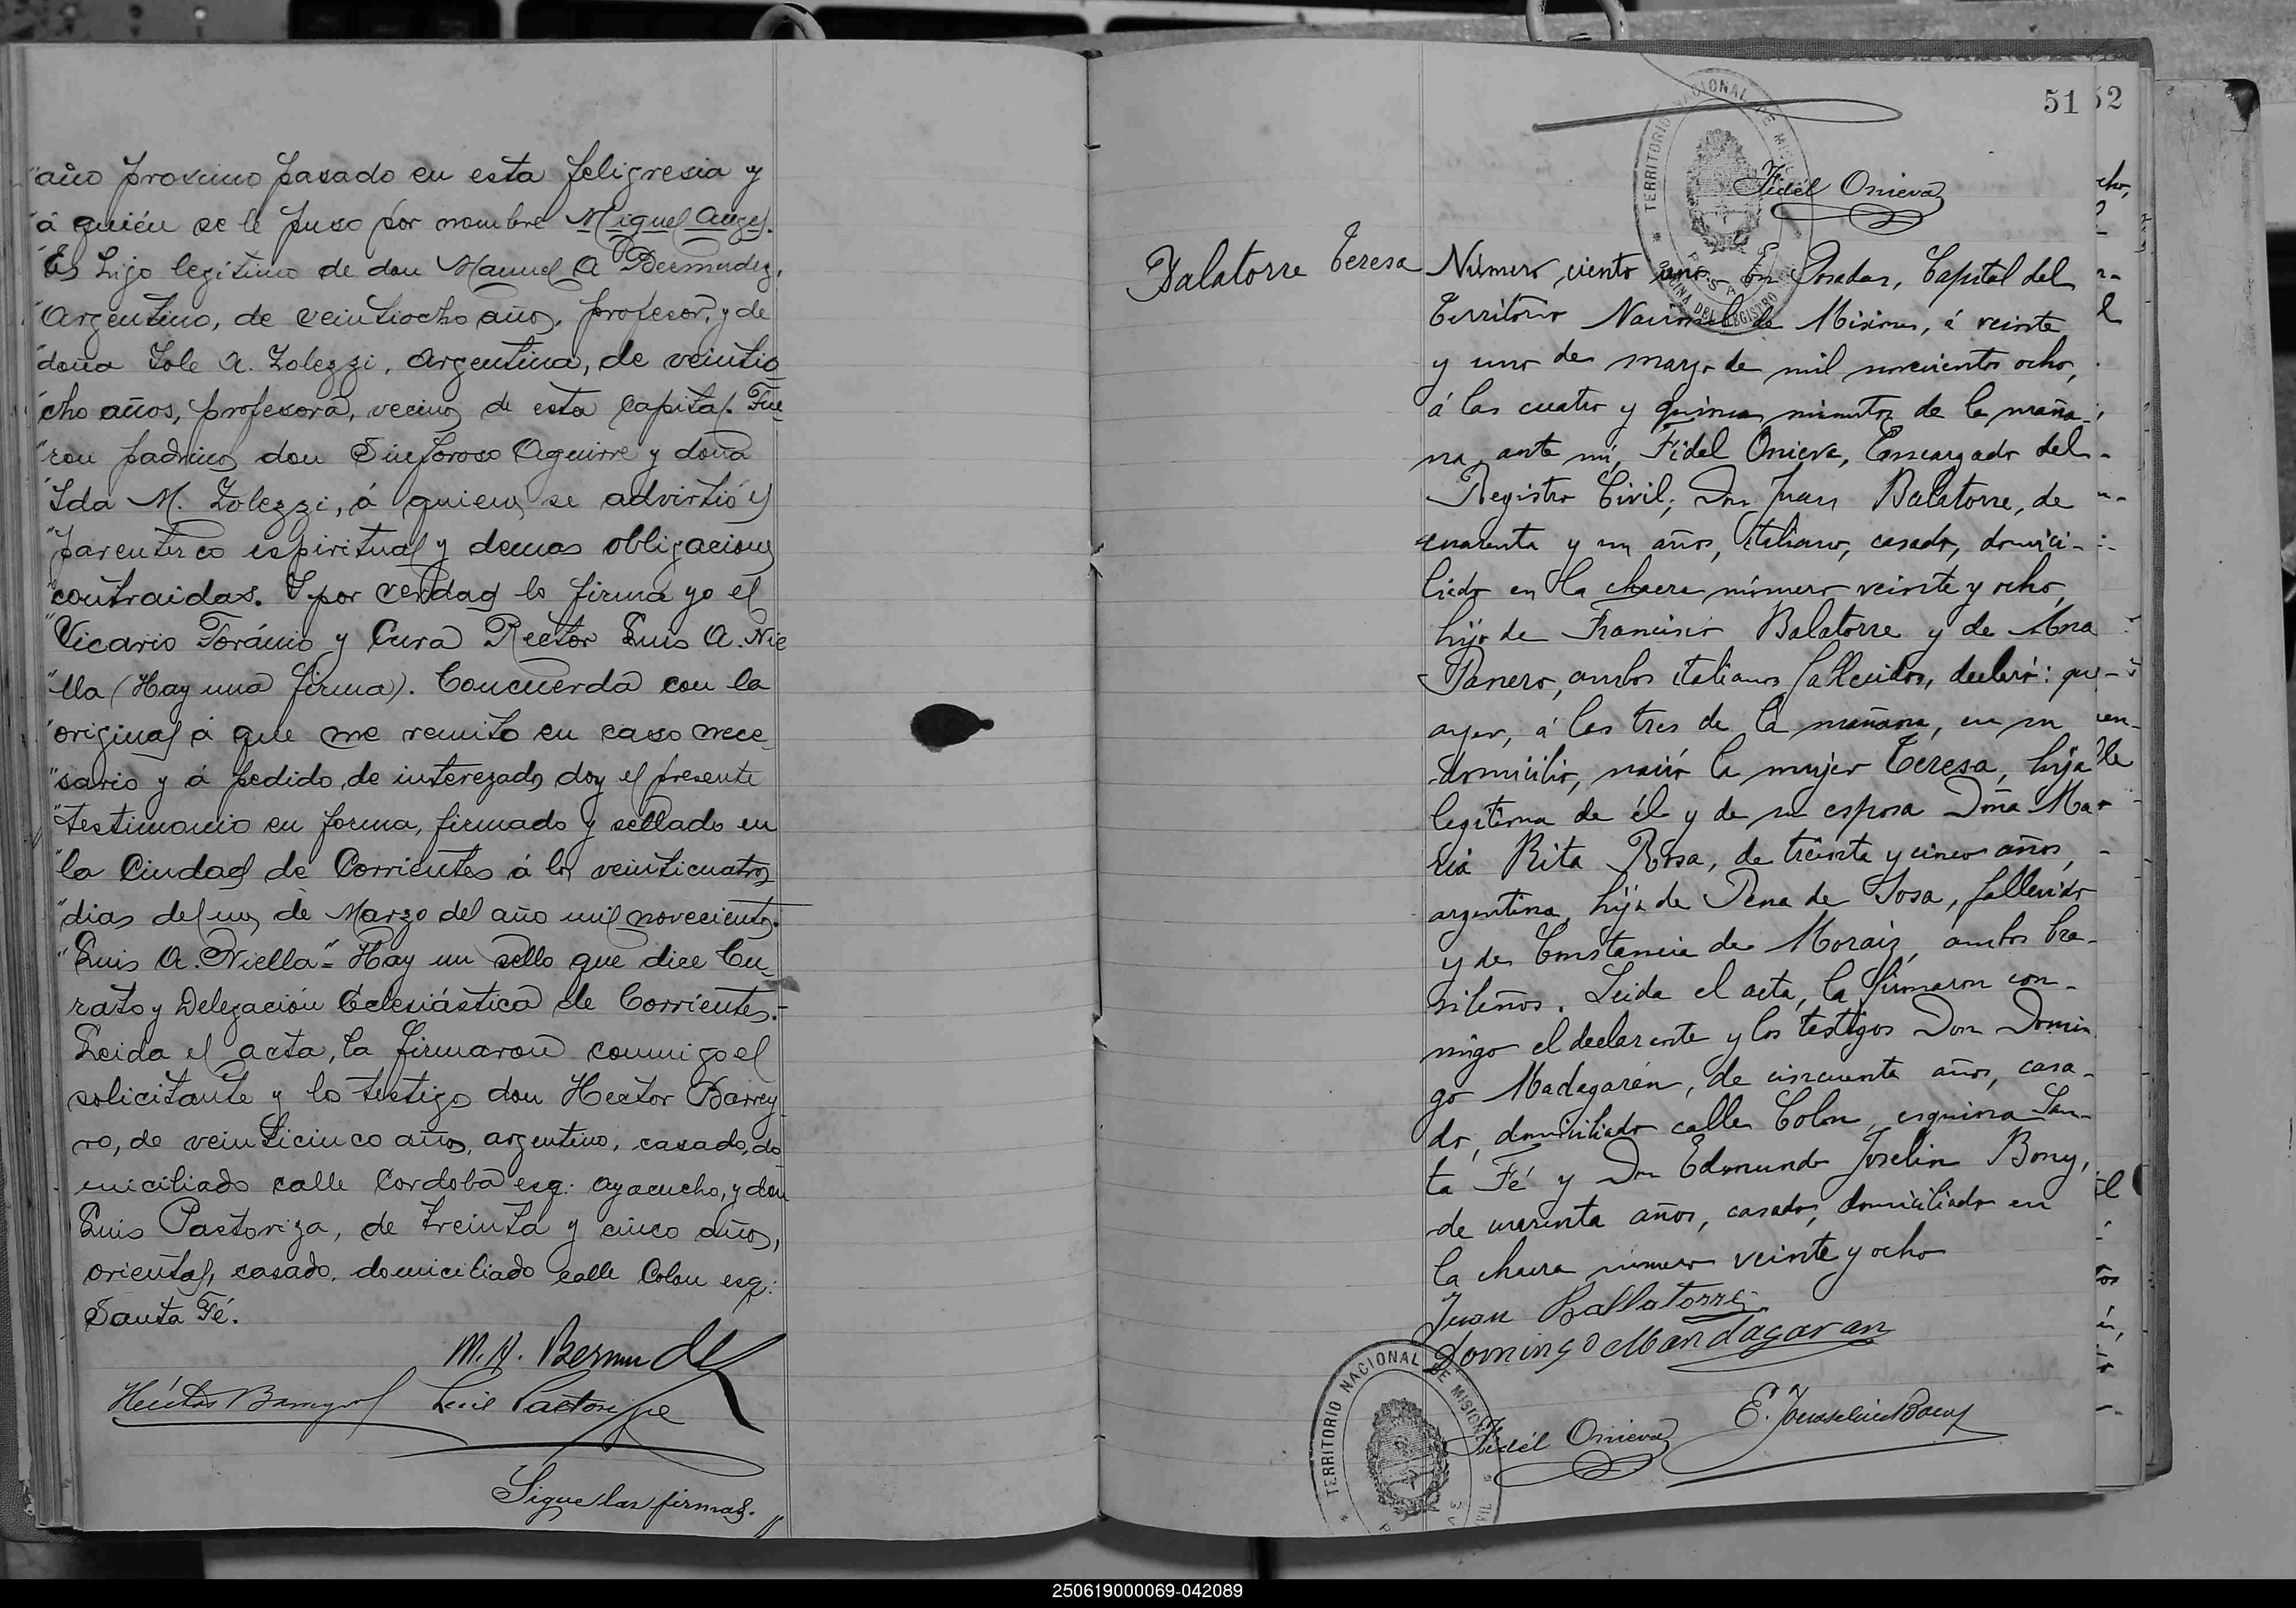 "año proximo pasado en esta feligresia y
"á quién se le puso por nombre Miguel Angel.
"Es hijo legitimo de don Manuel A Bermudez,
"Argentino, de veintiocho años, profesor, y de
"doña Iole A. Zolezzi, Argentina, de veintio
"cho años, profesora, vecinos de esta Capital. Fue
"ron padrinos don Sinforoso Aguirre y doña
"Ida M. Zolezzi, á quienes se advirtió el
"parentesco espiritual y demas obligaciones
"contraidas. Y por verdad lo firma yo el
"Vicario Foráneo y Cura Rector Luis A. Nie
"lla (Hay una firma). Concuerda con la
"original á que me remito en caso nece
"sario y á pedido de interezado doy el presente
"testimonio en forma, firmado y sellado en
"la Ciudad de Corrientes á los veinticuatro
"dias del mes de Marzo del año mil novecientos.
"Luis A. Niella"= Hay un sello que dice Cu-
rato y Delegación Eclesiástica de Corrientes.-
Leida el acta, la firmaron conmigo el
solicitante y los testigos don Hector Barrey
ro, de veinticinco años, argentino, casado, do
miciliado calle Cordoba esq: Ayacucho, y don
Luis Pastoriza, de treinta y cinco años,
oriental, casado, domiciliado calle Colon esq:
Santa Fé.
M. A. Bermudez
Héctor Barreyro Luis Pastoriza
Sigue las firmas.
51 52
TERRITORIO NACIONAL DE MISIONES
OFICINA DEL REGISTRO
POSADAS
Fidél Onieva
Balatorre Teresa
Número ciento uno. En Posadas, Capital del
Territorio Nacional de Misiones, á veinte
y uno de marzo de mil novecientos ocho,
á las cuatro y quince minutos de la maña-
na, ante mí, Fidel Onieva, Encargado del
Registro Civil; Don Juan Balatorre, de
cuarenta y un años, italiano, casado, domici-
liado en la chacra número veinte y ocho,
hijo de Francisco Balatorre y de Ana
Panero, ambos italianos fallecidos, declaró: que
ayer, á las tres de la mañana, en su
domicilio, nació la mujer Teresa, hija
legítima de él y de su esposa Doña Ma-
ria Rita Rosa, de treinta y cinco años,
argentina, hija de Pena de Sosa, fallecido
y de Constancia de Morais, ambos bra-
sileños. Leida el acta, la firmaron con-
migo el declarante y los testigos Don Domin
go Madagarén, de cincuenta años, casa-
do, domiciliado calle Colon, esquina San-
ta Fé y Don Edmundo Joselin Bony,
de cuarenta años, casado, domiciliado en
la chacra número veinte y ocho
Juan Ballatorre
Domingo Mandagaran
E. Jousselin Bony
Fidél Onieva
TERRITORIO NACIONAL DE MISIONES
250619000069-042089